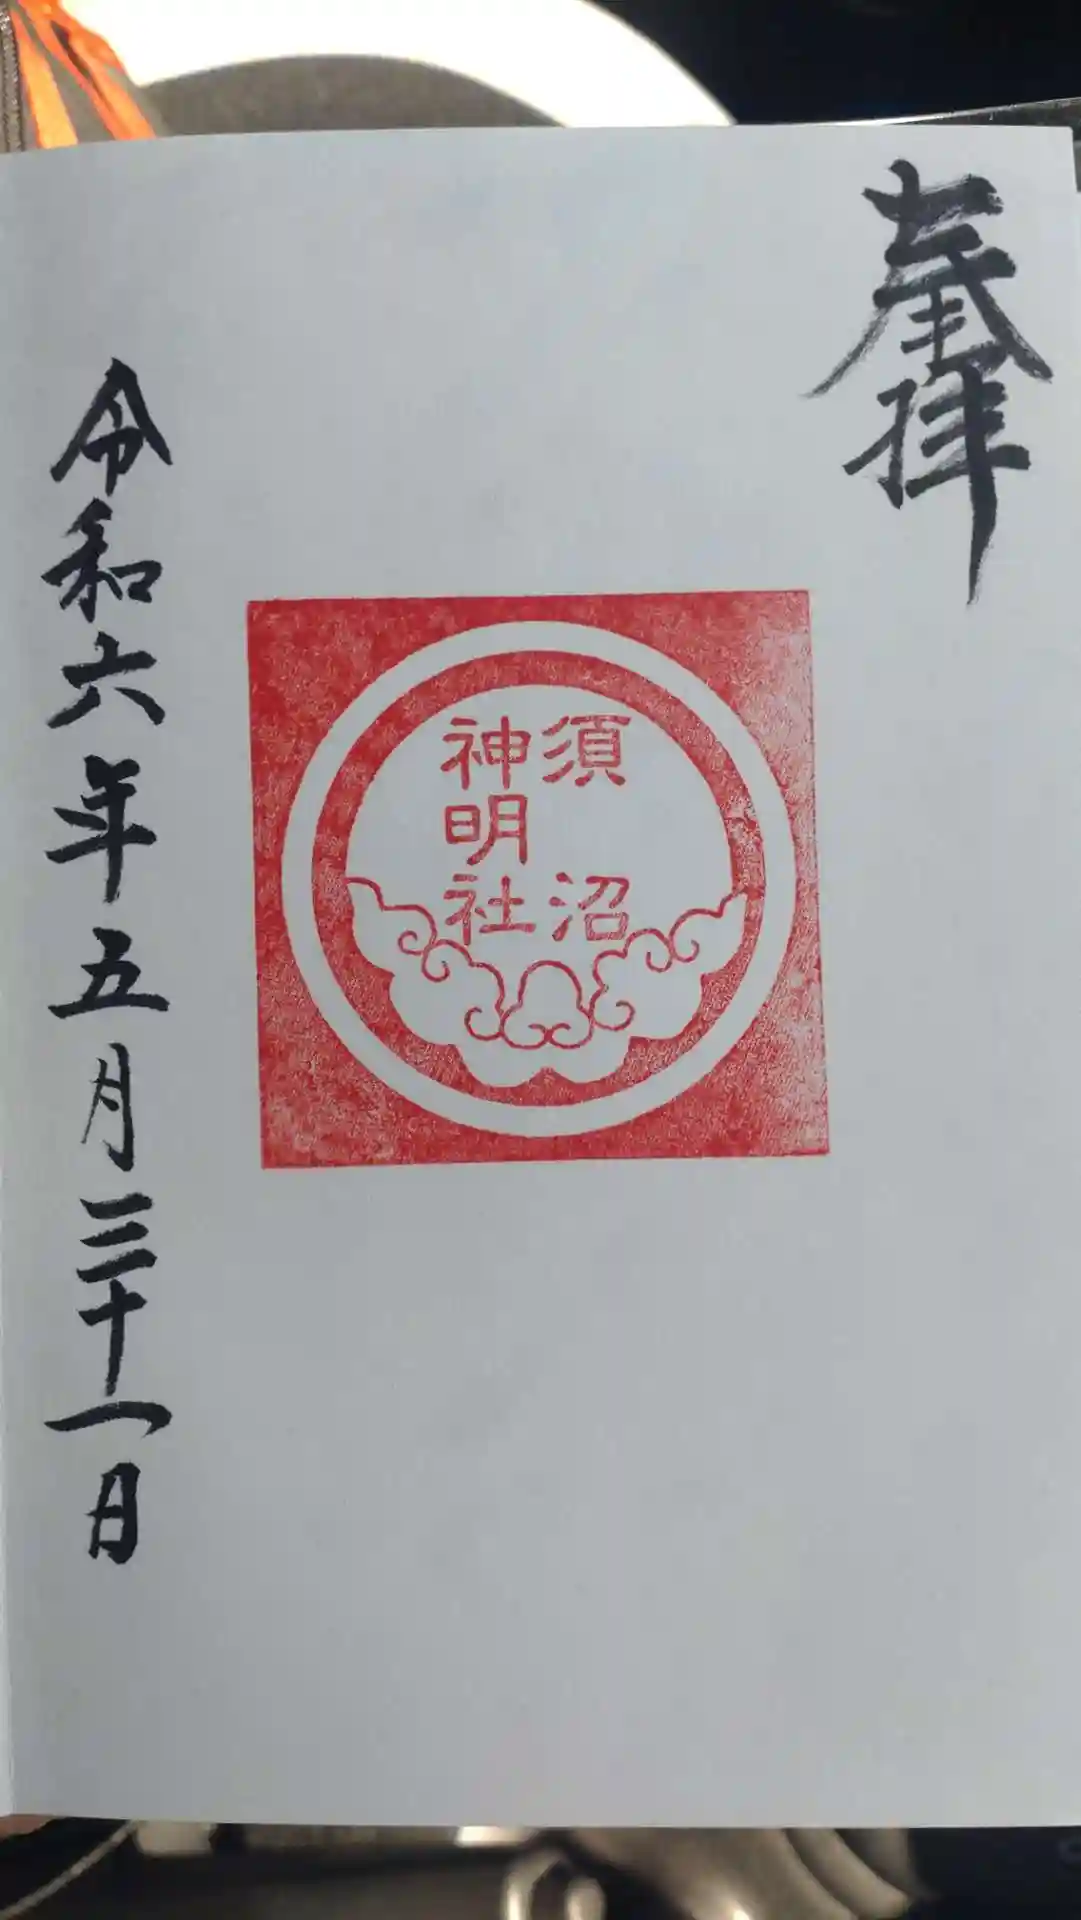 奉拝
須沼
神明社
令和六年五月三十一日